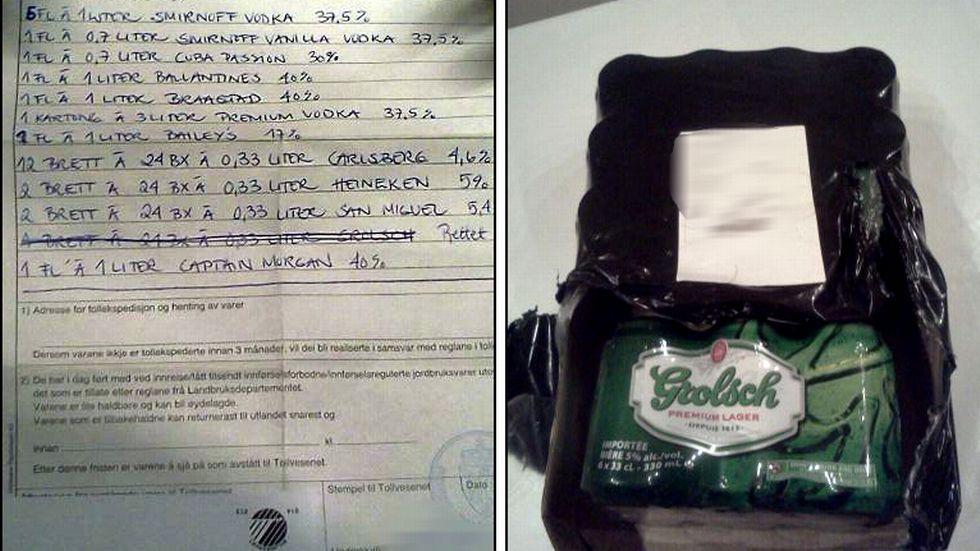 5 FL Ā 1 LITER SMIRNOFF VODKA 37,5%
1 FL Ā 0,7 LITER SMIRNOFF VANILLA VODKA 37,5%
1 FL Ā 0,7 LITER CUBA PASSION 30%
1 FL Ā 1 LITER BALLANTINES 40%
1 FL Ā 1 LITER BRAASTAD 40%
1 KARTONG Ā 3 LITER PREMIUM VODKA 37,5%
1 FL Ā 1 LITER BAILEY'S 17%
12 BRETT Ā 24 BX Ā 0,33 LITER CARLSBERG 4,6%
2 BRETT Ā 24 BX Ā 0,33 LITER HEINEKEN 5%
2 BRETT Ā 24 BX Ā 0,33 LITER SAN MIGUEL 5,4
BRETT Ā 24 BX Ā 0,33 LITER GROLSCH Rettet
1 FL Ā 1 LITER CAPTAIN MORGAN 40%
1) Adresse for tollekspedisjon og henting av varer
Dersom varene ikkje er tollekspederte innan 3 månader, vil dei bli realiserte i samsvar med reglane i toll
2) De har i dag ført med ved innreise/fått tilsendt innførselsforbodne/innførselsregulerte jordbruksvarer uto
det som er tillate etter reglane frå Landbruksdepartementet.
Varene er lite haldbare og kan bli øydelagde.
Varene som er tilbakehaldne kan returnerast til utlandet snarest og
innan kl
Etter denne fristen er varene å sjå på som avstått til Tollvesenet.
Stempel til Tollvesenet
Dato
Grolsch
PREMIUM LAGER
DEPUIS 1615
IMPORTÉE
BIÈRE 5% alc./vol.
6 x 33 cL - 330 mL e